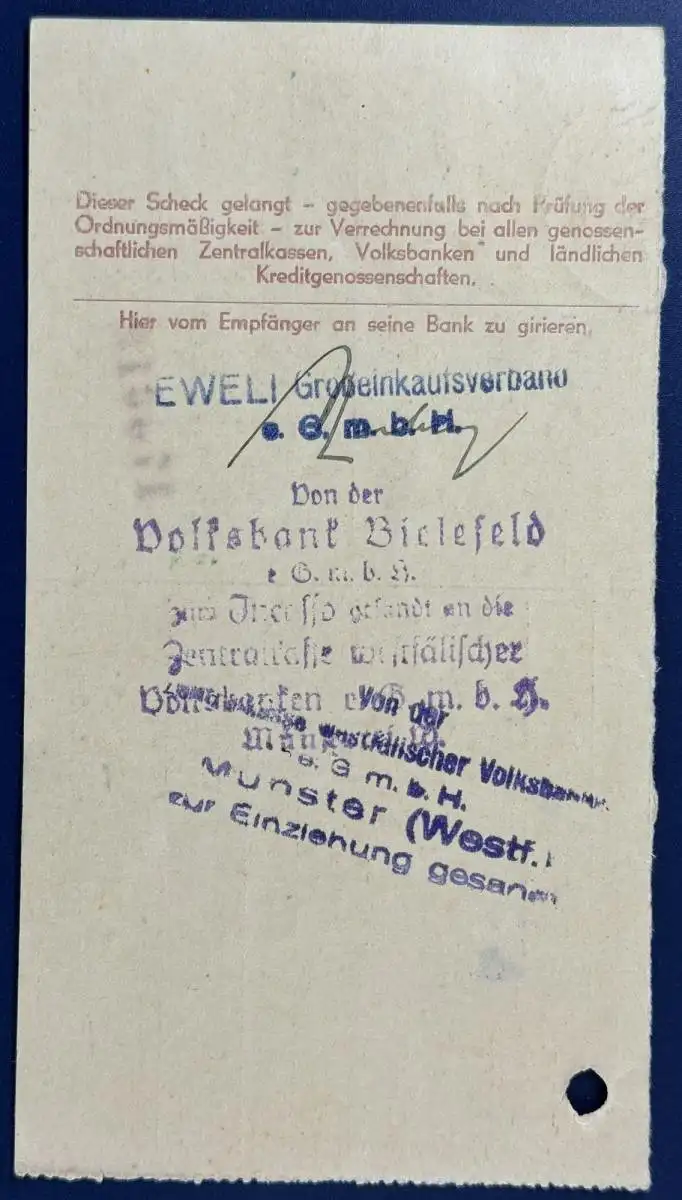 Dieser Scheck gelangt – gegebenenfalls nach Prüfung der
Ordnungsmäßigkeit – zur Verrechnung bei allen genossen-
schaftlichen Zentralkassen, Volksbanken und ländlichen
Kreditgenossenschaften.
Hier vom Empfänger an seine Bank zu girieren.
EWELI Großeinkaufsverband
e. G. m. b. H.
Von der
Volksbank Bielefeld
e G. m. b. H.
zum Incasso gesandt an die
Zentralkasse westfälischer
Volksbanken e. G. m. b. H.
Von der
westfälischer Volksbanken
e. G m. b. H.
Münster (Westf.)
zur Einziehung gesandt